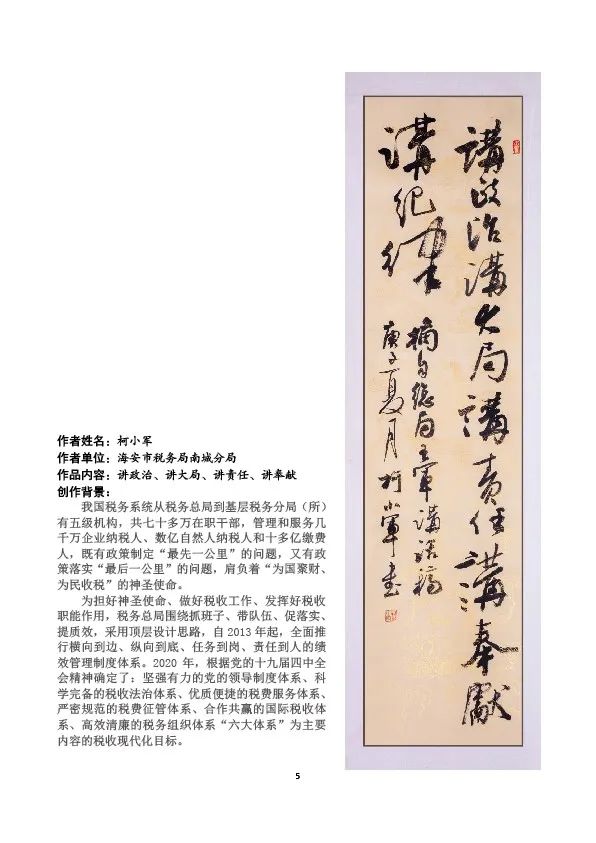 作者姓名：柯小军
作者单位：海安市税务局南城分局
作品内容：讲政治、讲大局、讲责任、讲奉献
创作背景：
我国税务系统从税务总局到基层税务分局（所）
有五级机构，共七十多万在职干部，管理和服务几
千万企业纳税人、数亿自然人纳税人和十多亿缴费
人，既有政策制定“最先一公里”的问题，又有政
策落实“最后一公里”的问题，肩负着“为国聚财、
为民收税”的神圣使命。
为担好神圣使命、做好税收工作、发挥好税收
职能作用，税务总局围绕抓班子、带队伍、促落实、
提质效，采用顶层设计思路，自 2013 年起，全面推
行横向到边、纵向到底、任务到岗、责任到人的绩
效管理制度体系。2020 年，根据党的十九届四中全
会精神确定了：坚强有力的党的领导制度体系、科
学完备的税收法治体系、优质便捷的税费服务体系、
严密规范的税费征管体系、合作共赢的国际税收体
系、高效清廉的税务组织体系“六大体系”为主要
内容的税收现代化目标。
講政治講大局講責任講奉獻
講纪律
摘自总局王軍講话稿
庚子夏月柯小軍书
5